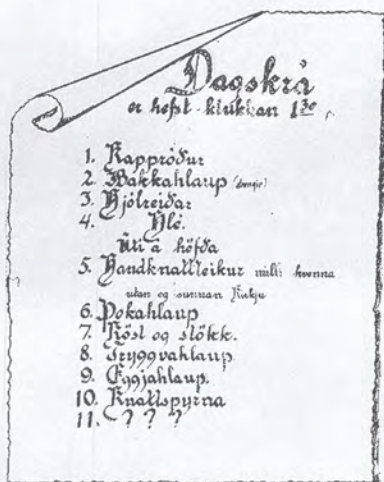 Dagskrá
er hefst klukkan 1 30
1. Kappróður
2. Bakkahlaup
3. Hjólreiðar
4. Hlé.
Úti á höfða
5. Handknattleikur milli kvenna
utan og sunnan Kirkju
6. Pokahlaup
7. Köst og stökk.
8. Tryggvahlaup.
9. Eggjahlaup.
10. Knattspyrna
11. ? ? ?